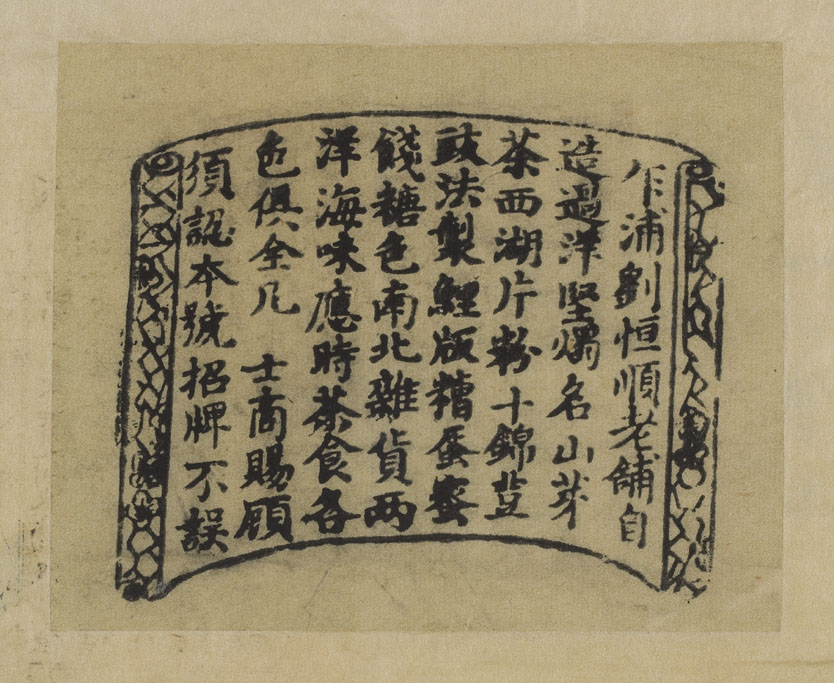 乍浦劉恒順老舖自
造過洋堅燭名山芽
茶西湖片粉十錦荳
豉法製鯉版糟蛋蜜
餞糖色南北雜貨两
洋海味應時茶食各
色俱全凡 士商賜顧
須認本號招牌不誤